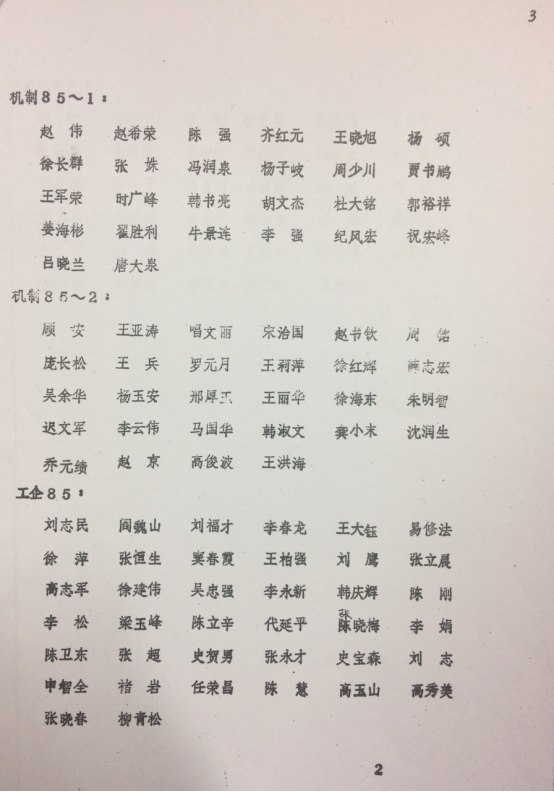 3
机制85～1：
赵 伟 赵希荣 陈 强 齐红元 王晓旭 杨 硕
徐长群 张 姝 冯润泉 杨子岐 周少川 贾书鹏
王军荣 时广峰 韩书亮 胡文杰 杜大铭 郭裕祥
姜海彬 翟胜利 牛景连 李 强 纪风宏 祝宏峰
吕晓兰 唐大泉
机制85～2：
顾 安 王亚涛 唱文丽 宋治国 赵书钦 周 铭
庞长松 王 兵 罗元月 王莉萍 徐红辉 志宏
吴余华 杨玉安 邢厚 王丽华 徐海东 朱明智
迟文军 李云伟 马国华 韩淑文 龚小末 沈润生
乔元绩 赵 京 高俊波 王洪海
工企85：
刘志民 阎魏山 刘福才 李春龙 王大钰 易修法
徐 萍 张恒生 窦春霞 王柏强 刘 鹰 张立晨
高志军 徐建伟 吴忠强 李永新 韩庆辉 陈 刚
张
李 松 梁玉峰 陈立辛 代延平 陈晓梅 李 娟
陈卫东 张 超 史贺男 张永才 史宝森 刘 志
申智全 褚 岩 任荣昌 陈 慧 高玉山 高秀美
张晓春 柳青松
2